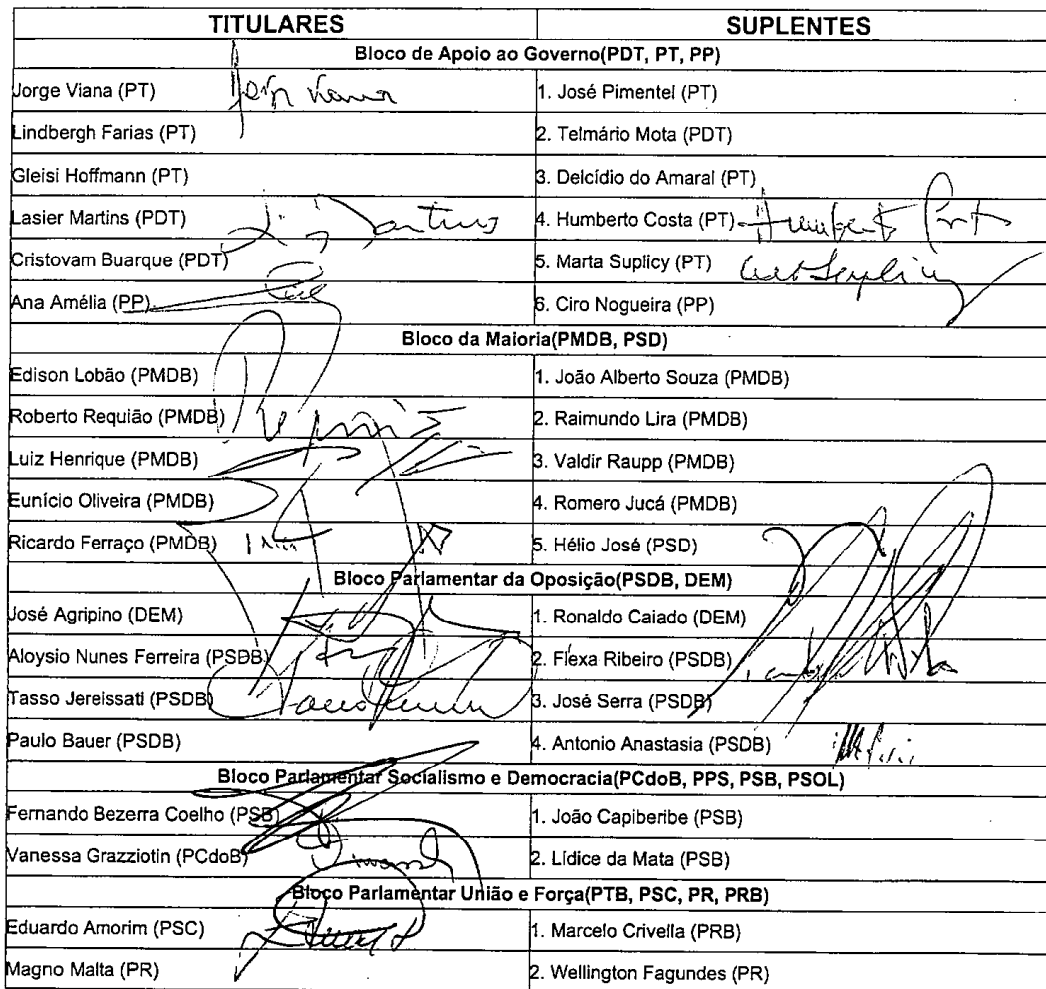 TITULARES SUPLENTES
Bloco de Apoio ao Governo(PDT, PT, PP)
Jorge Viana (PT) Jorge Viana 1. José Pimentel (PT)
Lindbergh Farias (PT) 2. Telmário Mota (PDT)
Gleisi Hoffmann (PT) 3. Delcídio do Amaral (PT)
Lasier Martins (PDT) Martins 4. Humberto Costa (PT) Humberto Costa
Cristovam Buarque (PDT) 5. Marta Suplicy (PT) Suplicy
Ana Amélia (PP) 6. Ciro Nogueira (PP)
Bloco da Maioria(PMDB, PSD)
Edison Lobão (PMDB) 1. João Alberto Souza (PMDB)
Roberto Requião (PMDB) 2. Raimundo Lira (PMDB)
Luiz Henrique (PMDB) 3. Valdir Raupp (PMDB)
Eunício Oliveira (PMDB) 4. Romero Jucá (PMDB)
Ricardo Ferraço (PMDB) 5. Hélio José (PSD)
Bloco Parlamentar da Oposição(PSDB, DEM)
José Agripino (DEM) 1. Ronaldo Caiado (DEM)
Aloysio Nunes Ferreira (PSDB) 2. Flexa Ribeiro (PSDB)
Tasso Jereissati (PSDB) 3. José Serra (PSDB)
Paulo Bauer (PSDB) 4. Antonio Anastasia (PSDB)
Bloco Parlamentar Socialismo e Democracia(PCdoB, PPS, PSB, PSOL)
Fernando Bezerra Coelho (PSB) 1. João Capiberibe (PSB)
Vanessa Grazziotin (PCdoB) 2. Lídice da Mata (PSB)
Bloco Parlamentar União e Força(PTB, PSC, PR, PRB)
Eduardo Amorim (PSC) 1. Marcelo Crivella (PRB)
Magno Malta (PR) 2. Wellington Fagundes (PR)